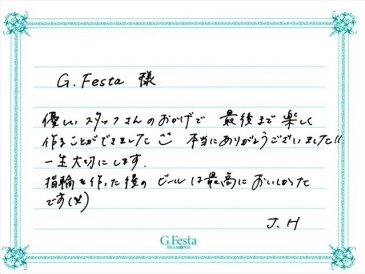 G.Festa 様
優しいスタッフさんのおかげで 最後まで楽しく
作ることができました 本当にありがとうございました!!
一生大切にします.
指輪を作った後のビールは最高においしかった
です(笑)
J.H
G.Festa
DIAMOND